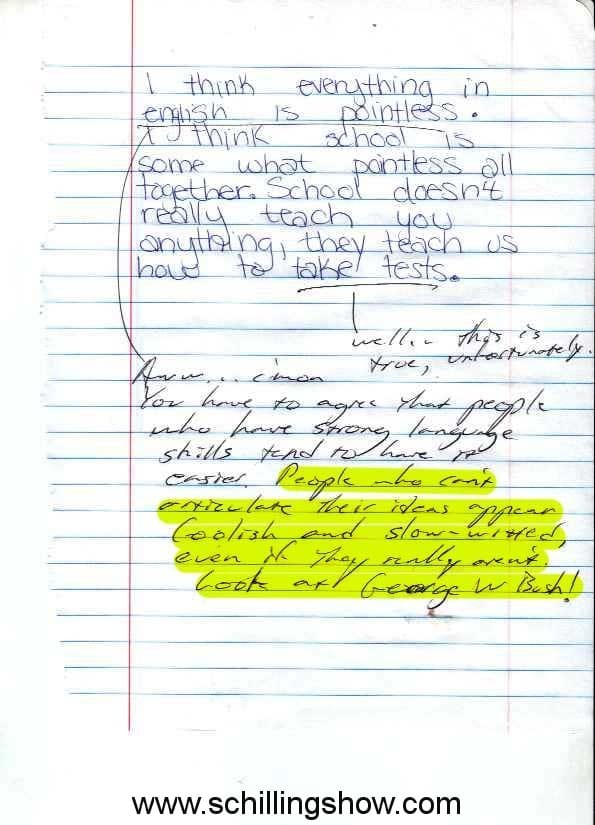 I think everything in
english is pointless.
I think school is
some what pointless all
together. School doesn't
really teach you
anything, they teach us
how to take tests.
well.. this is
true, unfortunately.
Aww... c'mon
You have to agree that people
who have strong language
skills tend to have it
easier. People who can't
articulate their ideas appear
foolish and slow-witted,
even if they really aren't.
Look at George W Bush!
www.schillingshow.com